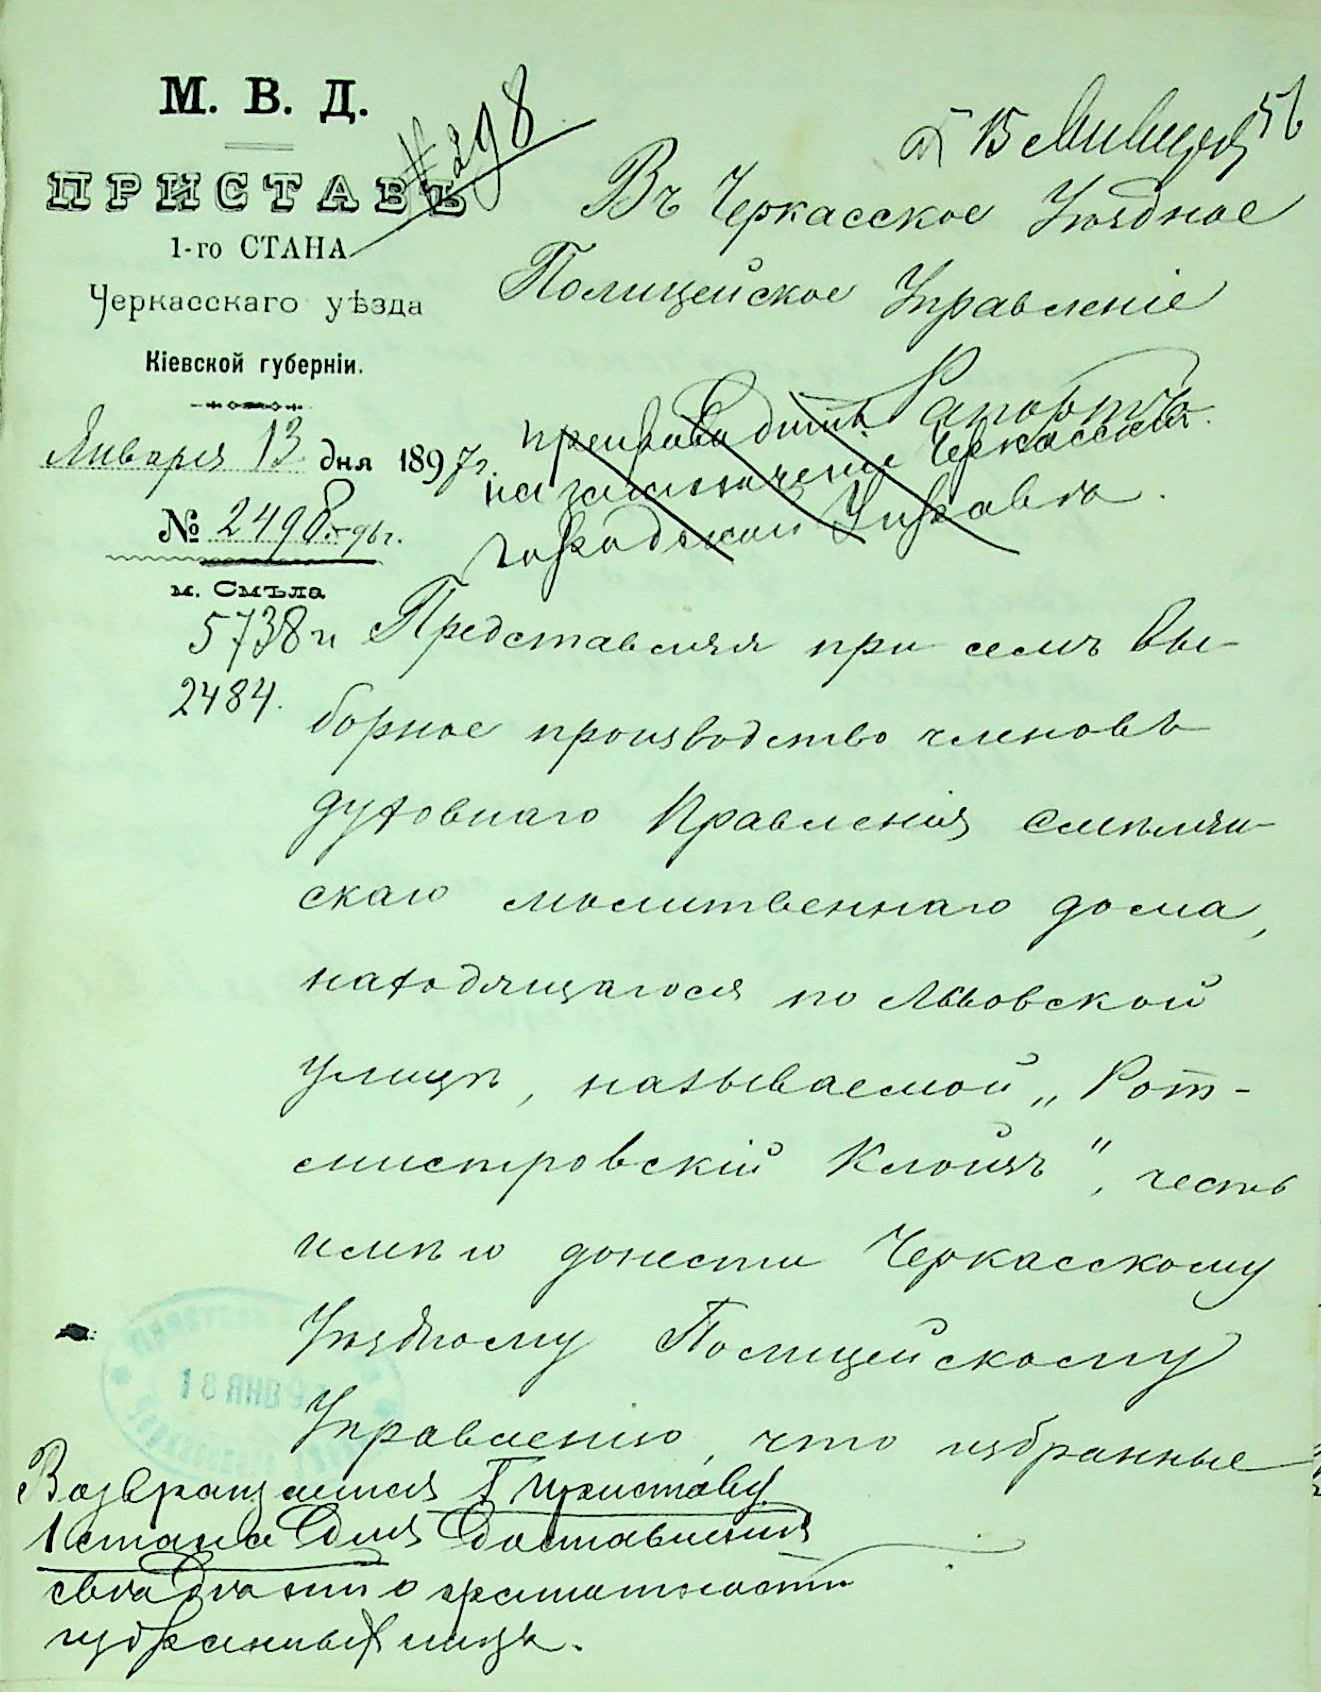 М. В. Д.
ПРИСТАВЪ
1-го СТАНА
Черкасскаго уѣзда
Кіевской губерніи.
Января 13 дня 1897 г.
№ 2498 96 г.
м. Смѣла
5738 и
2484.
№ 298
15
Въ Черкасское Уѣздное
Полицейское Управленіе
Рапортъ
препроводить
на заключение Черкасской
городской Управы.
Представляя при семъ вы-
борное производство членовъ
духовнаго Правленія смѣлян-
скаго молитвеннаго дома,
находящагося по Львовской
улицѣ, называемой „Рот-
мистровскій Клойзъ", честь
имѣю донести Черкасскому
Уѣздному Полицейскому
Управленію, что избранные
Возвращается Г. Приставу
1 стана для доставления
сведении о грамотности
избранных лицъ.